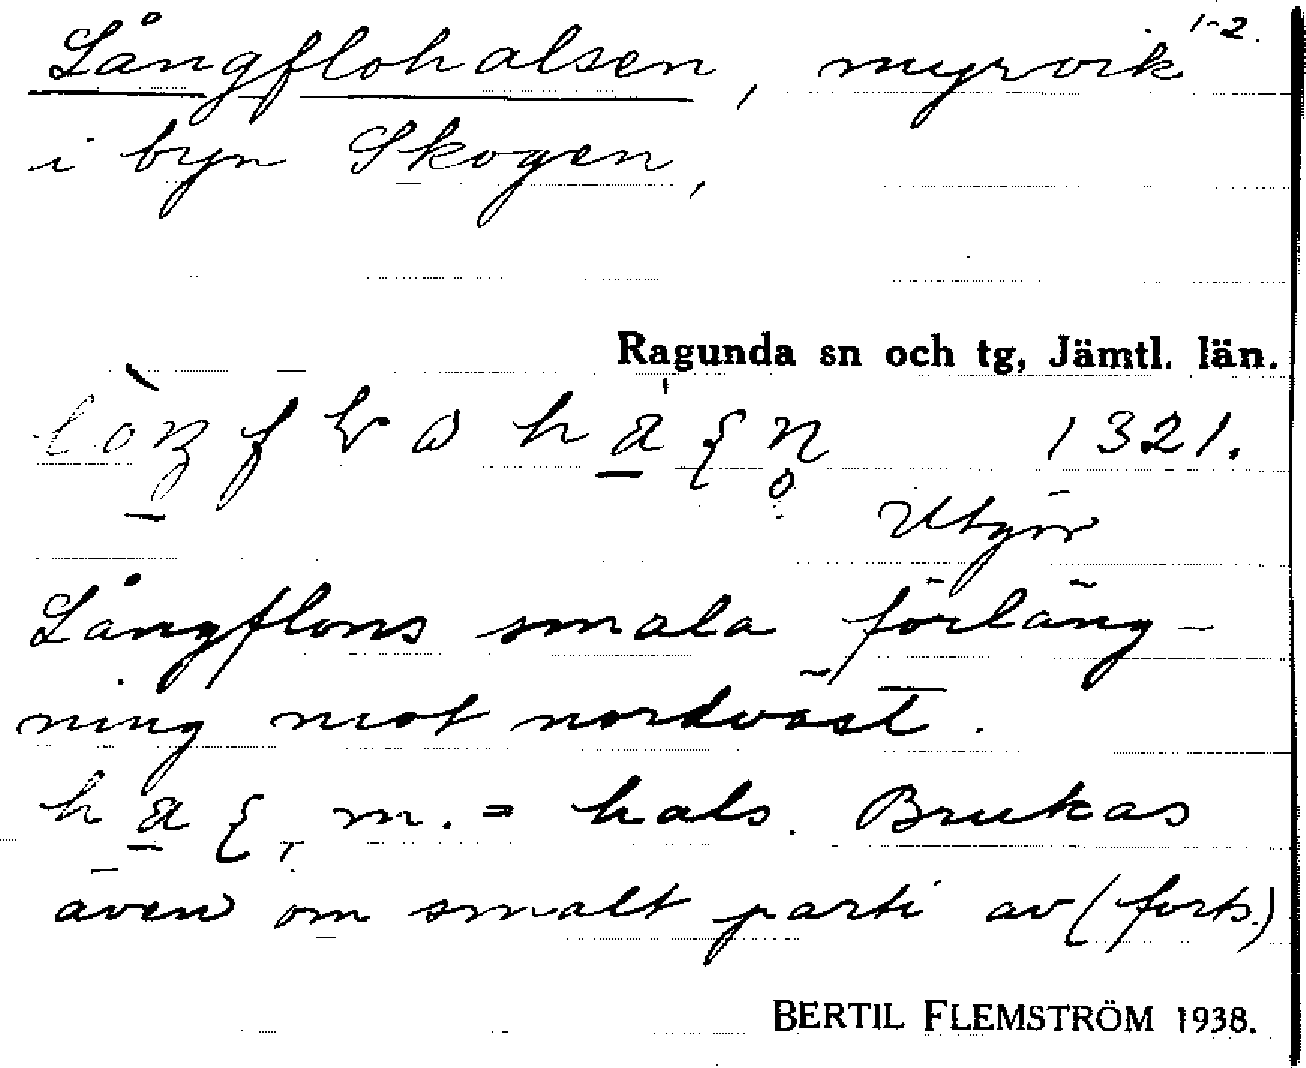 Långflohalsen, myrvik 1-2.
i byn Skogen,
Ragunda sn och tg, Jämtl. län.
1321.
Utgör
Långflons smala förläng-
ning mot nordväst.
m. = hals. Brukas
även om smalt parti av (forts.)
BERTIL FLEMSTRÖM 1938.